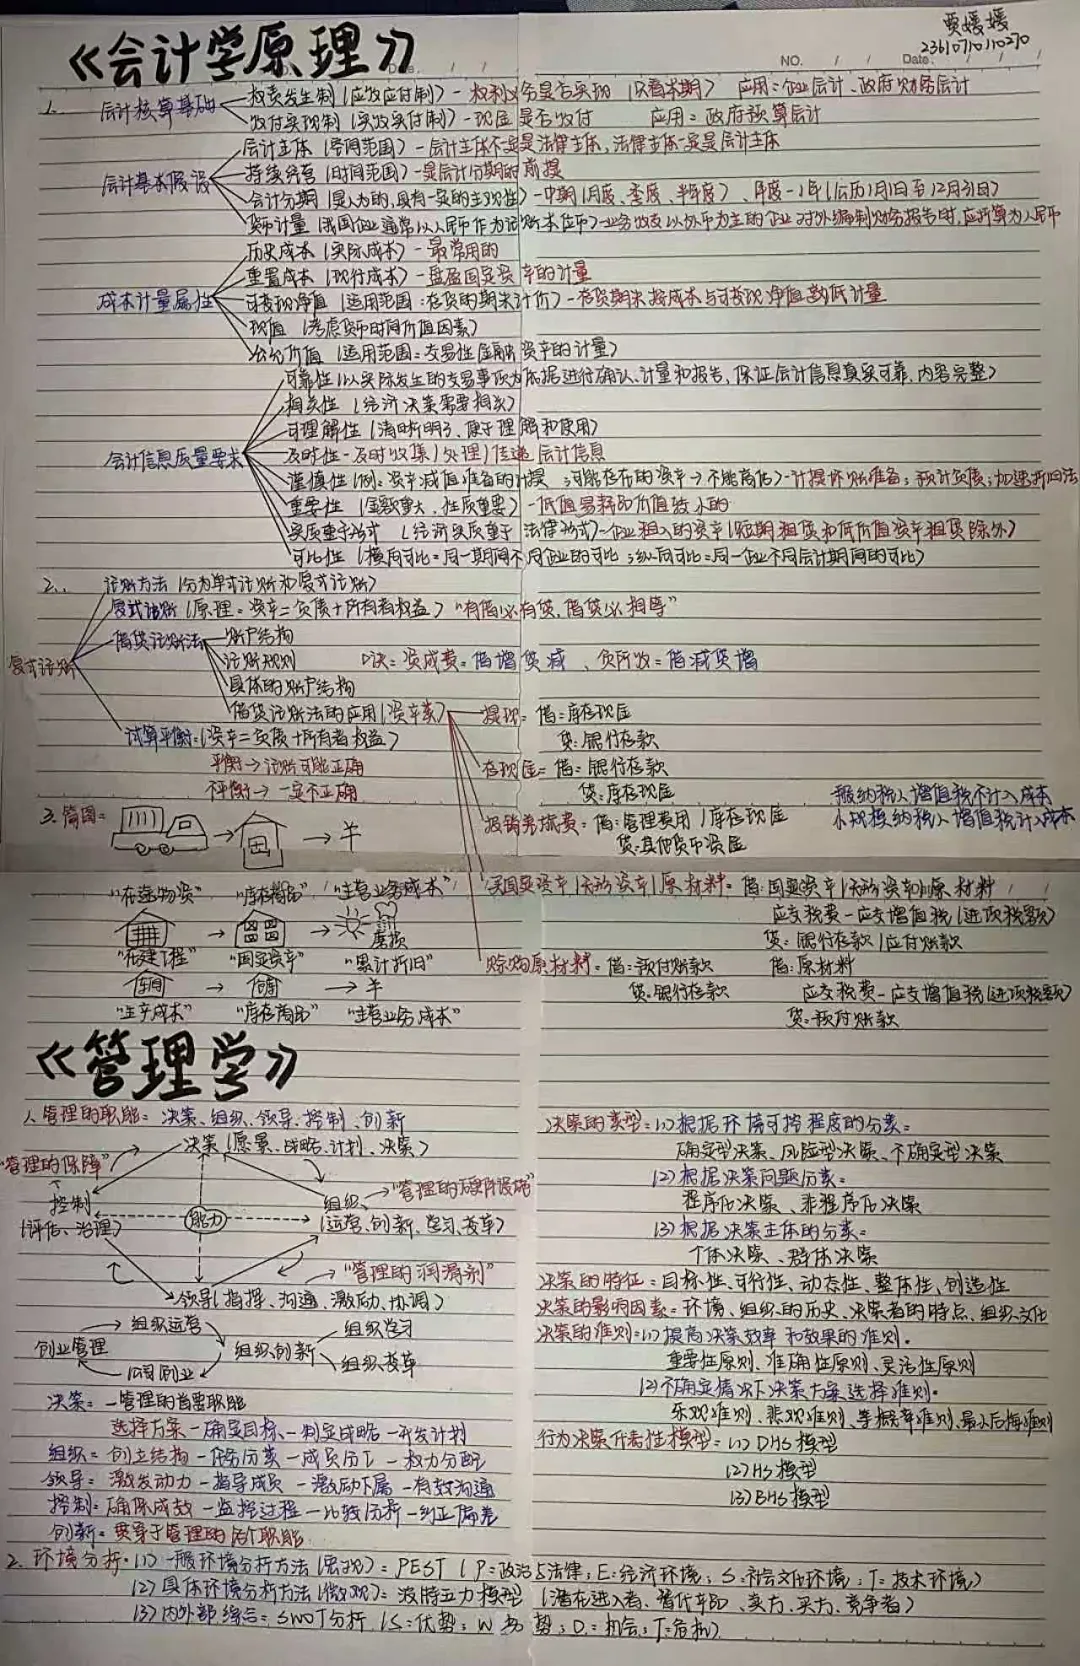 《会计学原理》
贾媛媛
23610710110270
NO.
Date.
1. 会计核算基础
权责发生制(应收应付制)-权利义务是否实现(只看本期) 应用:企业会计、政府财务会计
收付实现制(实收实付制)-现金是否收付 应用:政府预算会计
会计基本假设
会计主体(空间范围)-会计主体不一定是法律主体,法律主体一定是会计主体
持续经营(时间范围)-是会计分期的前提
会计分期(是人为的,具有一定的主观性)-中期(月度、季度、半年度)、年度-1年(公历1月1日至12月31日)
货币计量(我国企业通常以人民币作为记账本位币)-业务收支以外币为主的企业对外编制财务报告时,应折算为人民币
成本计量属性
历史成本(实际成本)-最常用的
重置成本(现行成本)-盘盈固定资产的计量
可变现净值(运用范围:存货的期末计价)-存货期末按成本与可变现净值孰低计量
现值(考虑货币时间价值因素)
公允价值(运用范围:交易性金融资产的计量)
会计信息质量要求
可靠性(以实际发生的交易事项为依据进行确认、计量和报告,保证会计信息真实可靠,内容完整)
相关性(经济决策需要相关)
可理解性(清晰明了、便于理解和使用)
及时性-及时收集/处理/传递会计信息
谨慎性(例:资产减值准备的计提;可能存在的资产→不能高估)-计提坏账准备;预计负债;加速折旧法
重要性(金额重大、性质重要)-低值易耗品价值较小的
实质重于形式(经济实质重于法律形式)-企业租入的资产(短期租赁和低价值资产租赁除外)
可比性(横向可比=同一期间不同企业的可比;纵向可比=同一企业不同会计期间的可比)
2. 复式记账
记账方法(分为单式记账和复式记账)
复式记账(原理:资产=负债+所有者权益)"有借必有贷,借贷必相等"
借贷记账法
账户结构
记账规则 口诀:资成费=借增贷减、负所收=借减贷增
具体的账户结构
借贷记账法的应用(资产类)
提现=借:库存现金
贷:银行存款
试算平衡:(资产=负债+所有者权益)
平衡→记账可能正确
不平衡→一定不正确
存现金=借:银行存款
贷:库存现金
报销差旅费:借:管理费用/库存现金
贷:其他货币资金
一般纳税人增值税不计入成本
小规模纳税人增值税计入成本
3. 简图=
"在途物资" "库存商品" "主营业务成本"
买固定资产/无形资产/原材料:借:固定资产/无形资产/原材料
应交税费-应交增值税(进项税额)
贷:银行存款/应付账款
磨损
"在建工程" "固定资产" "累计折旧"
赊购原材料:借:预付账款 借:原材料
贷:银行存款 应交税费-应交增值税(进项税额)
贷:预付账款
车间
"生产成本" "库存商品" "主营业务成本"
《管理学》
1. 管理的职能=决策、组织、领导、控制、创新
决策(愿景、战略、计划、决策)
"管理的保障"
控制
(评估、治理)
能力
组织→"管理的硬件设施"
(运营、创新、学习、变革)
"管理的润滑剂"
领导(指挥、沟通、激励、协调)
创业管理
组织运营
公司创业
组织创新
组织学习
组织变革
决策:-管理的首要职能
选择方案-确定目标-制定战略-开发计划
组织=创立结构-任务分类-成员分工-权力分配
领导=激发动力-指导成员-激励下属-有效沟通
控制:确保成效-监控过程-比较分析-纠正偏差
创新:贯穿于管理的各个职能
决策的类型=(1)根据环境可控程度的分类=
确定型决策、风险型决策、不确定型决策
(2)根据决策问题分类=
程序化决策、非程序化决策
(3)根据决策主体的分类=
个体决策、群体决策
决策的特征=目标性、可行性、动态性、整体性、创造性
决策的影响因素=环境、组织的历史、决策者的特点、组织文化
决策的准则=(1)提高决策效率和效果的准则.
重要性原则、准确性原则、灵活性原则
(2)不确定情况下决策方案选择准则.
乐观准则、悲观准则、等概率准则、最小后悔准则
行为决策代表性模型=(1)DHS模型
(2)HS模型
(3)BHS模型
2. 环境分析:(1)一般环境分析方法(宏观)=PEST(P=政治与法律;E=经济环境;S:社会文化环境;T=技术环境)
(2)具体环境分析方法(微观)=波特五力模型(潜在进入者、替代车的、卖方、买方、竞争者)
(3)内外部综合=SWOT分析(S:优势;W:劣势;O=机会;T=危机)